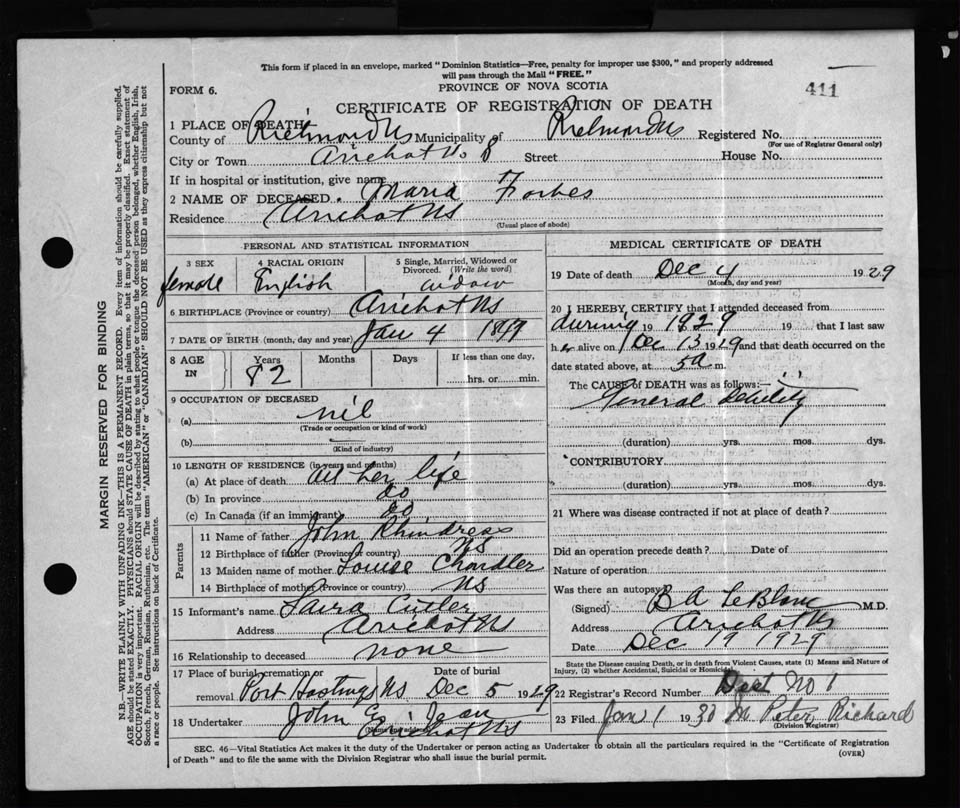 This form if placed in an envelope, marked "Dominion Statistics—Free, penalty for improper use $300," and properly addressed
will pass through the Mail "FREE."
FORM 6.
PROVINCE OF NOVA SCOTIA
411
CERTIFICATE OF REGISTRATION OF DEATH
1 PLACE OF DEATH
County of Richmond NS Municipality of Richmond NS Registered No.
(For use of Registrar General only)
City or Town Arichat NS Street House No.
If in hospital or institution, give name
2 NAME OF DECEASED. Maria Forbes
Residence Arichat NS
(Usual place of abode)
PERSONAL AND STATISTICAL INFORMATION
3 SEX 4 RACIAL ORIGIN 5 Single, Married, Widowed or Divorced. (Write the word)
female English widow
6 BIRTHPLACE (Province or country) Arichat NS
7 DATE OF BIRTH (month, day and year) Jan 4
8 AGE IN Years Months Days If less than one day,
82 hrs. or min.
9 OCCUPATION OF DECEASED
(a) nil
(Trade or occupation or kind of work)
(b)
(Kind of industry)
10 LENGTH OF RESIDENCE (in years and months)
(a) At place of death all her life
(b) In province do
(c) In Canada (if an immigrant) do
Parents
11 Name of father John Rhindress
12 Birthplace of father (Province or country) NS
13 Maiden name of mother Louise Chandler
14 Birthplace of mother (Province or country) NS
15 Informant's name Laura Cutler
Address Arichat NS
16 Relationship to deceased none
17 Place of burial, cremation or removal Port Hastings NS Date of burial Dec 5 1929
18 Undertaker John E Jean
(Name and address) Arichat NS
MEDICAL CERTIFICATE OF DEATH
19 Date of death Dec 4 1929
(Month, day and year)
20 I HEREBY CERTIFY that I attended deceased from
during 19 1929 19 that I last saw
her alive on Dec 13 1929 and that death occurred on the
date stated above, at 5 a m.
The CAUSE of DEATH was as follows:—
General Debility
(duration) yrs. mos. dys.
CONTRIBUTORY
(duration) yrs. mos. dys.
21 Where was disease contracted if not at place of death?
Did an operation precede death? Date of
Nature of operation
Was there an autopsy?
(Signed) B A LeBlanc M.D.
Address Arichat NS
Date Dec 19 1929
State the Disease causing Death, or in death from Violent Causes, state (1) Means and Nature of
Injury, (2) whether Accidental, Suicidal or Homicidal
22 Registrar's Record Number No 1
23 Filed Jan 1 1930 M Peter Richard
(Division Registrar)
SEC. 46—Vital Statistics Act makes it the duty of the Undertaker or person acting as Undertaker to obtain all the particulars required in the "Certificate of Registration
of Death" and to file the same with the Division Registrar who shall issue the burial permit.
(OVER)
MARGIN RESERVED FOR BINDING
N.B.—WRITE PLAINLY WITH UNFADING INK—THIS IS A PERMANENT RECORD. Every item of information should be carefully supplied.
AGE should be stated EXACTLY. PHYSICIANS should STATE CAUSE OF DEATH in plain terms, so that it may be properly classified. Exact statement of
OCCUPATION is very important. RACIAL ORIGIN will be described by stating to what people or tongue the deceased person belonged, whether English, Irish,
Scotch, French, German, Russian, Ruthenian, etc. The terms "AMERICAN" or "CANADIAN" SHOULD NOT BE USED as they express citizenship but not
a race or people. See instructions on back of Certificate.